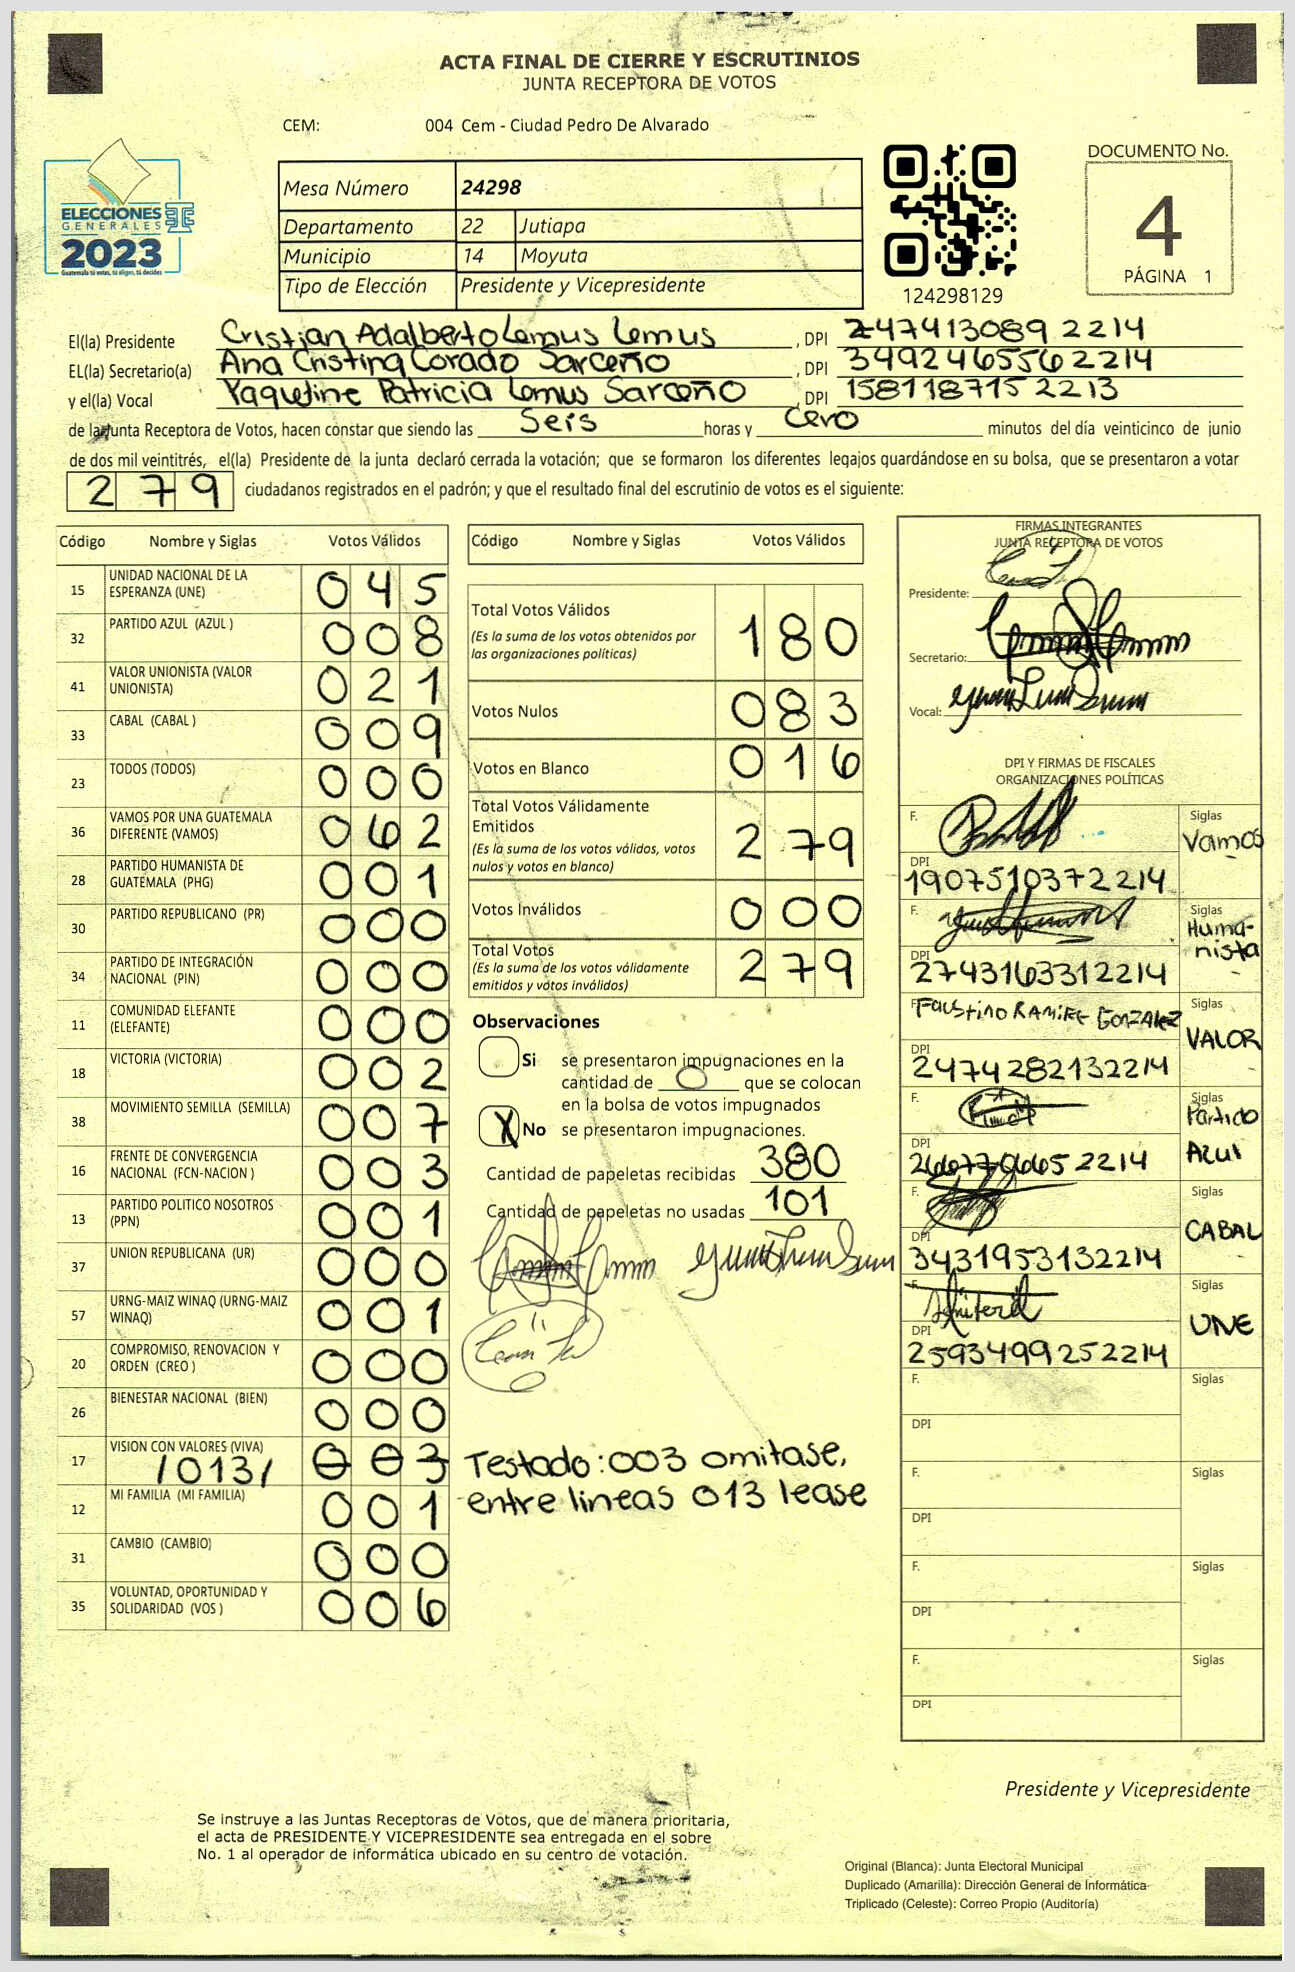 ACTA FINAL DE CIERRE Y ESCRUTINIOS
JUNTA RECEPTORA DE VOTOS
CEM: 004 Cem - Ciudad Pedro De Alvarado
ELECCIONES
GENERALES
2023
Guatemala tú votas, tú eliges, tú decides
Mesa Número 24298
Departamento 22 Jutiapa
Municipio 14 Moyuta
Tipo de Elección Presidente y Vicepresidente
124298129
DOCUMENTO No.
4
PÁGINA 1
El(la) Presidente Cristian Adalberto Lemus Lemus, DPI 247413089 2214
EL(la) Secretario(a) Ana Cristina Corado Sarceño, DPI 3492465562214
y el(la) Vocal Yaqueline Patricia Lemus Sarceño, DPI 158118715 2213
de la Junta Receptora de Votos, hacen constar que siendo las Seis horas y Cero minutos del día veinticinco de junio
de dos mil veintitrés, el(la) Presidente de la junta declaró cerrada la votación; que se formaron los diferentes legajos guardándose en su bolsa, que se presentaron a votar
279 ciudadanos registrados en el padrón; y que el resultado final del escrutinio de votos es el siguiente:
Código Nombre y Siglas Votos Válidos
15 UNIDAD NACIONAL DE LA ESPERANZA (UNE) 045
32 PARTIDO AZUL (AZUL ) 008
41 VALOR UNIONISTA (VALOR UNIONISTA) 021
33 CABAL (CABAL ) 009
23 TODOS (TODOS) 000
36 VAMOS POR UNA GUATEMALA DIFERENTE (VAMOS) 062
28 PARTIDO HUMANISTA DE GUATEMALA (PHG) 001
30 PARTIDO REPUBLICANO (PR) 000
34 PARTIDO DE INTEGRACIÓN NACIONAL (PIN) 000
11 COMUNIDAD ELEFANTE (ELEFANTE) 000
18 VICTORIA (VICTORIA) 002
38 MOVIMIENTO SEMILLA (SEMILLA) 007
16 FRENTE DE CONVERGENCIA NACIONAL (FCN-NACION ) 003
13 PARTIDO POLITICO NOSOTROS (PPN) 001
37 UNION REPUBLICANA (UR) 000
57 URNG-MAIZ WINAQ (URNG-MAIZ WINAQ) 001
20 COMPROMISO, RENOVACION Y ORDEN (CREO ) 000
26 BIENESTAR NACIONAL (BIEN) 000
17 VISION CON VALORES (VIVA) /013/ 003
12 MI FAMILIA (MI FAMILIA) 001
31 CAMBIO (CAMBIO) 000
35 VOLUNTAD, OPORTUNIDAD Y SOLIDARIDAD (VOS ) 006
Código Nombre y Siglas Votos Válidos
Total Votos Válidos 180
(Es la suma de los votos obtenidos por
las organizaciones políticas)
Votos Nulos 083
Votos en Blanco 016
Total Votos Válidamente
Emitidos 279
(Es la suma de los votos válidos, votos
nulos y votos en blanco)
Votos Inválidos 000
Total Votos 279
(Es la suma de los votos válidamente
emitidos y votos inválidos)
Observaciones
Si se presentaron impugnaciones en la
cantidad de 0 que se colocan
en la bolsa de votos impugnados
X No se presentaron impugnaciones.
Cantidad de papeletas recibidas 380
Cantidad de papeletas no usadas 101
Testado: 003 omitase,
entre lineas 013 lease
FIRMAS INTEGRANTES
JUNTA RECEPTORA DE VOTOS
Presidente:
Secretario:
Vocal:
DPI Y FIRMAS DE FISCALES
ORGANIZACIONES POLÍTICAS
F. Siglas Vamos
DPI 1907510372214
F. Siglas Humanista
DPI 2743163312214
F. Faustino RAMIRE GONZALEZ Siglas VALOR
DPI 2474282132214
F. Siglas Partido Azul
DPI 2667706652214
F. Siglas CABAL
DPI 3431953132214
F. Siglas UNE
DPI 2593499252214
F. Siglas
DPI
F. Siglas
DPI
F. Siglas
DPI
F. Siglas
DPI
Presidente y Vicepresidente
Se instruye a las Juntas Receptoras de Votos, que de manera prioritaria,
el acta de PRESIDENTE Y VICEPRESIDENTE sea entregada en el sobre
No. 1 al operador de informática ubicado en su centro de votación.
Original (Blanca): Junta Electoral Municipal
Duplicado (Amarilla): Dirección General de Informática
Triplicado (Celeste): Correo Propio (Auditoría)